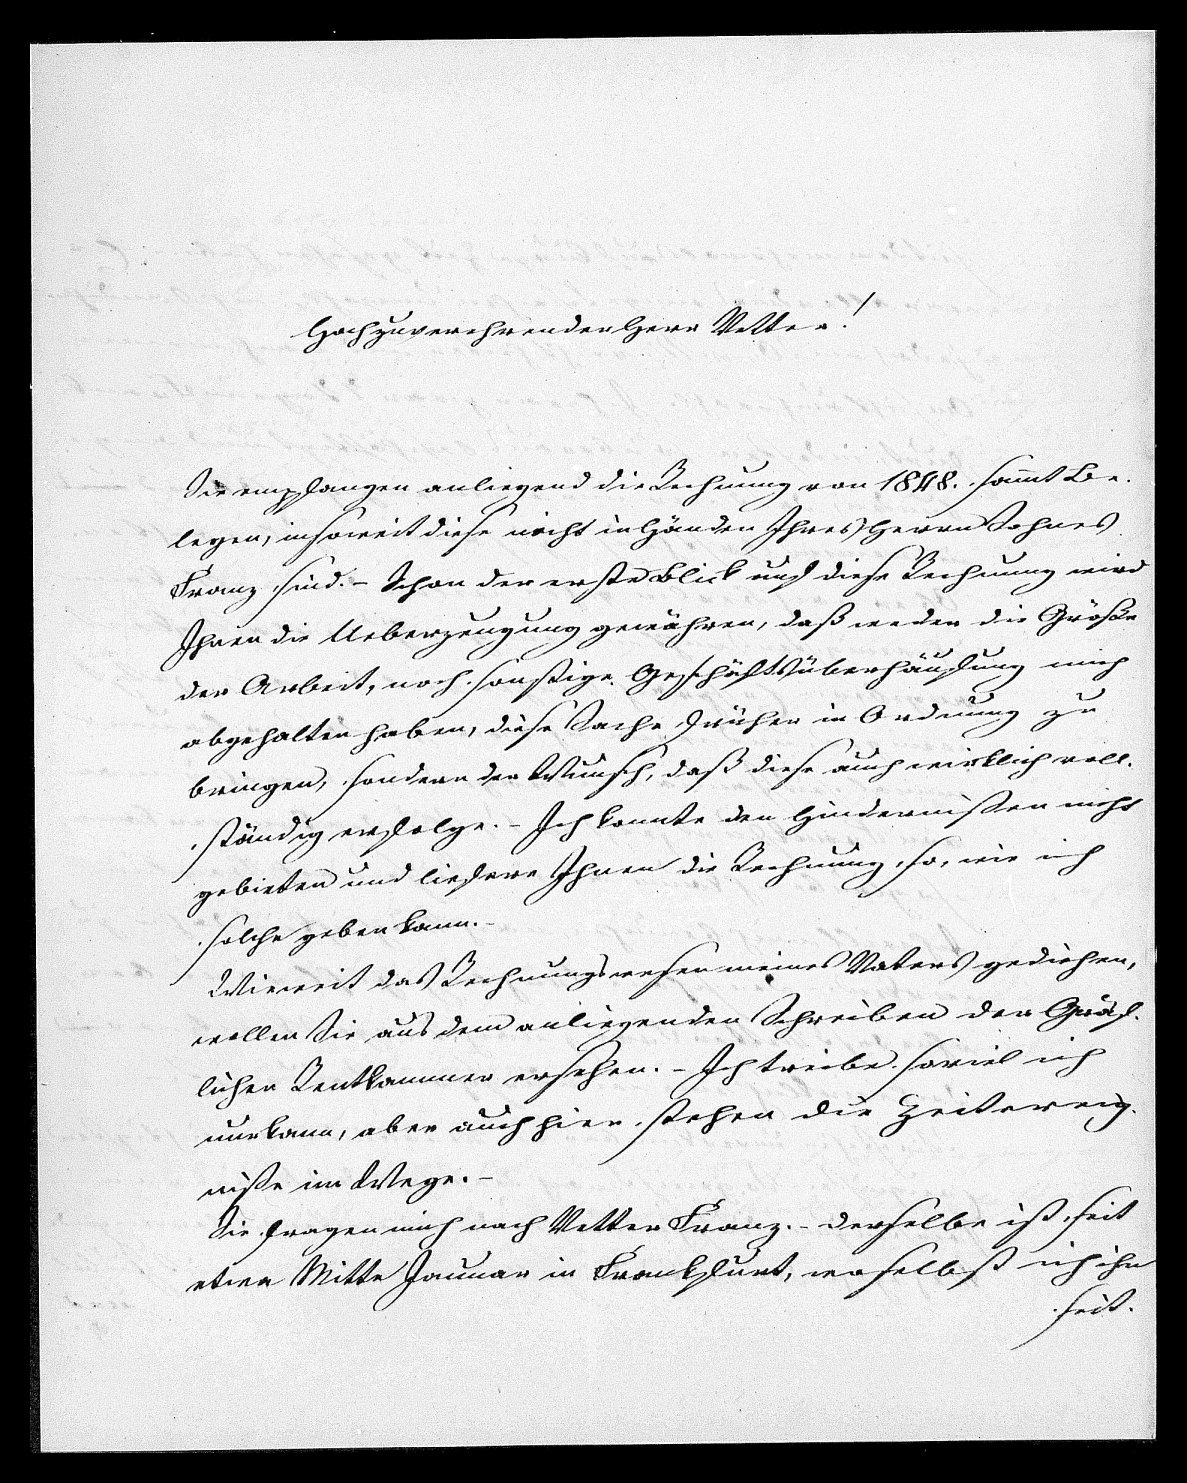 Hochzuverehrender Herr Vetter!
Sie empfangen anliegend die Rechnung von 1848. sam̄t Be-
legen, insoweit diese nicht in Händen Ihres Herrn Sohnes
Franz sind. – Schon der erste Blick auf diese Rechnung wird
Ihnen die Ueberzeugung gewähren, daß weder die Größe
der Arbeit, noch sonstige Geschäftsüberhäufung mich
abgehalten haben, diese Sache früher in Ordnung zu
bringen, sondern der Wunsch, daß diese auch wirklich voll-
ständig erfolge. – Ich konnte den Hindernißen nicht
gebieten und liefere Ihnen die Rechnung, so, wie ich
solche geben kann. –
Wieweit das Rechnungswesen meines Vaters gediehen,
wollen Sie aus dem anliegenden Schreiben der Gräf-
lichen Rentkammer ersehen. – Ich treibe soviel ich
nur kann, aber auch hier stehen die Zeitereig-
niße im Wege. –
Sie fragen mich nach Vetter Franz. – derselbe ist seit
etwa Mitte Januar in Frankfurt, woselbst ich ihn
seit-